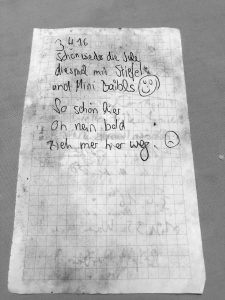 3.4.16
Schon wieder die Jule
diesmal mit Stiefel
und Mini
So schön hier
oh nein bald
zieh mer hier weg.